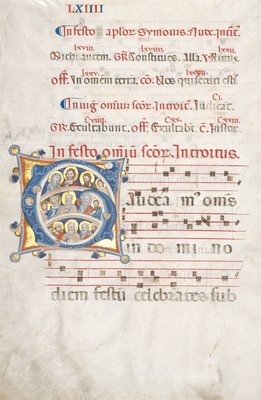 LXIIII
In festo aplor Symonis. & Jude. Introit.
lxviii. lxviii. lxxi.
Michi autem. GR. Constitues. Alla. V. Nimis.
lxxv. lxxii
off. In omnem terra. co. Vos qui secuti estis
Ci.
In uig. omniuз scor. Introit. Judicāt.
Cviii. Cxxi. Cxxiii.
GR. Exultabunt. off. Exultabt. C. Iustor
In festo omniu scor. Introitus.
Gaudeamus omnes
in domino
diem festu celebrates sub